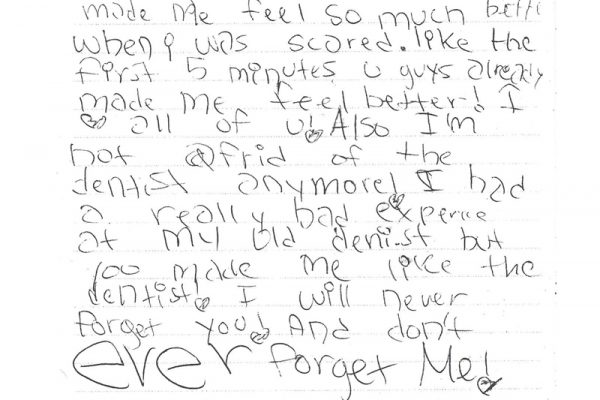 made me feel so much bette
when i was scared. like the
first 5 minutes u guys already
made me feel better! I
♡ all of u! Also I'm
not afrid of the
dentist anymore! I had
a really bad experice
at my old denist but
you made me like the
dentist! I will never
forget you! And don't
ever forget Me!